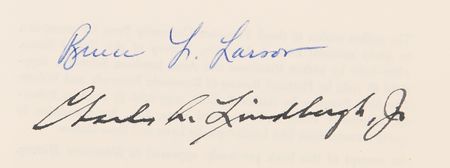 Bruce L. Larson
Charles A. Lindbergh, Jr